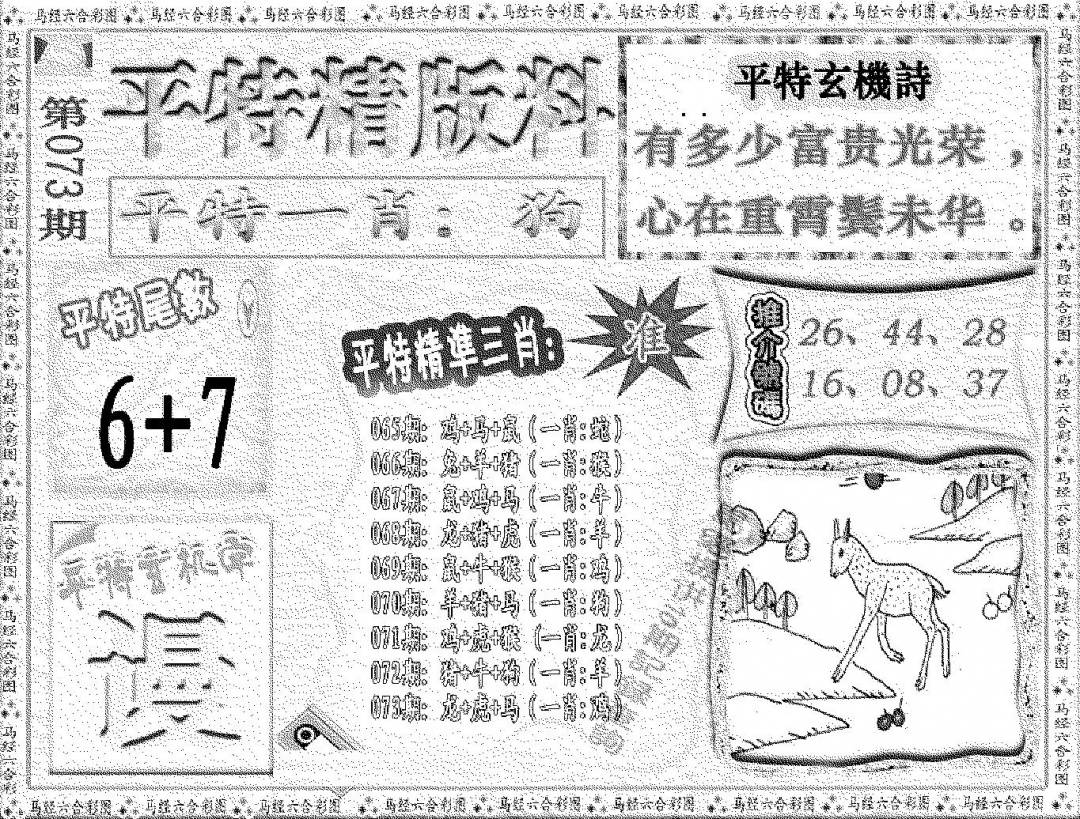 马经六合彩图 马经六合彩图 马经六合彩图 马经六合彩图 马经六合彩图 马经六合彩图 马经六合彩图 马经六合彩图 马经六合彩图
第073期
平特精版料
平特一肖：狗
平特玄機詩
有多少富贵光荣，
心在重霄鬓未华。
平特尾数
6+7
平特精準三肖:
准
推介號碼
26、44、28
16、08、37
065期: 鸡+马+鼠 (一肖:蛇)
066期: 兔+羊+猪 (一肖:猴)
067期: 鼠+鸡+马 (一肖:牛)
068期: 龙+猪+虎 (一肖:羊)
069期: 鼠+牛+猴 (一肖:鸡)
070期: 羊+猪+马 (一肖:狗)
071期: 鸡+虎+猴 (一肖:龙)
072期: 猪+牛+狗 (一肖:羊)
073期: 龙+虎+马 (一肖:鸡)
平特玄机字
马经六合彩图 马经六合彩图 马经六合彩图 马经六合彩图 马经六合彩图 马经六合彩图 马经六合彩图 马经六合彩图 马经六合彩图